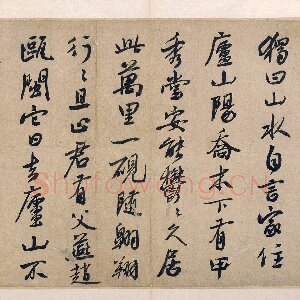 獨曰山水自言家住
廬山陽喬木下有甲
秀堂安能鬱〻久居
此萬里一硯隨翱翔
行〻且止君有父燕趙
甌閩它日去廬山不